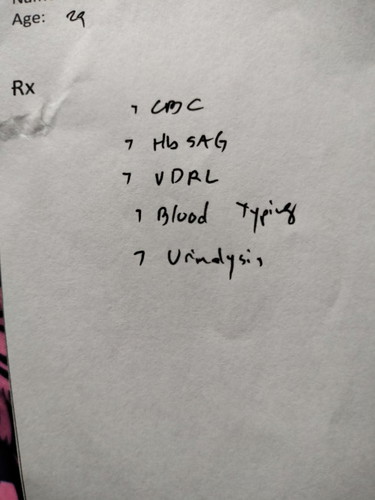 Age: 29
Rx
, CBC
, HbSAG
, VDRL
, Blood Typing
, Urinalysis